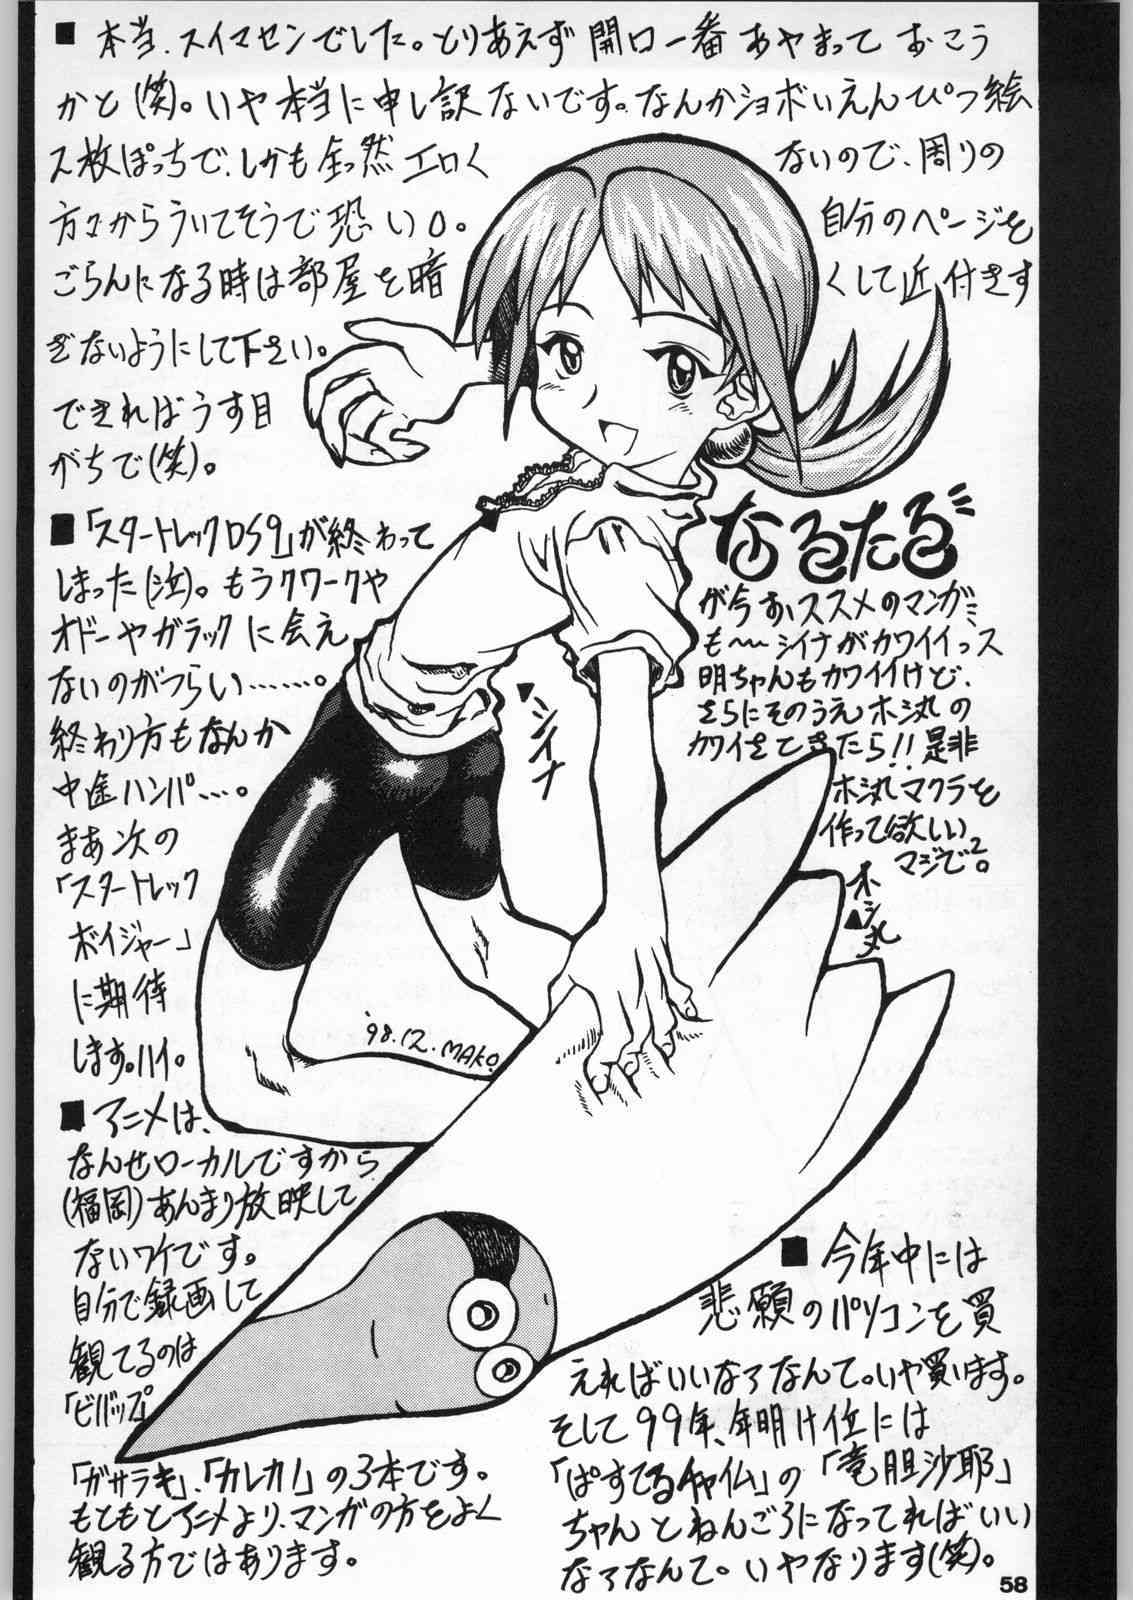 ■本当、スイマセンでした。とりあえず開口一番あやまっておこう
かと(笑)。いや本当に申し訳ないです。なんかショボいえんぴつ絵
2枚ぽっちで、しかも全っ然エロくないので、周りの
方々からういてそうで恐い。自分のページを
ごらんになる時は部屋を暗くして近付きす
ぎないようにして下さい。
できればうす目
がちで(笑)。
■「スタートレックDS9」が終わって
しまった(泣)。もうクワークや
オドーやガラックに会え
ないのがつらい………。
終わり方もなんか
中途ハンパ…。
まあ次の
「スタートレック
ボイジャー」
に期待
します。ハイ。
■アニメは、
なんせローカルですから
(福岡)あんまり放映して
ないワケです。
自分で録画して
観てるのは
「ビバップ」
「ガサラキ」、「カレカノ」の3本です。
もともとアニメより、マンガの方をよく
観る方ではあります。
なるたる
が今おススメのマンガ
も〜〜シイナがカワイイっス
明ちゃんもカワイイけど、
さらにそのうえホシ丸の
カワイさときたら!!是非
ホシ丸マクラを
作って欲しい
マジで2。
▲シイナ
ホシ丸
▲
'98.12.MAKO
■今年中には
悲願のパソコンを買
えればいいなァなんて。いや買います。
そして99年、年明け位には
「ぱすてるチャイム」の「竜胆沙耶」
ちゃんとねんごろになってればいい
なァなんて。いやなります(笑)。
58